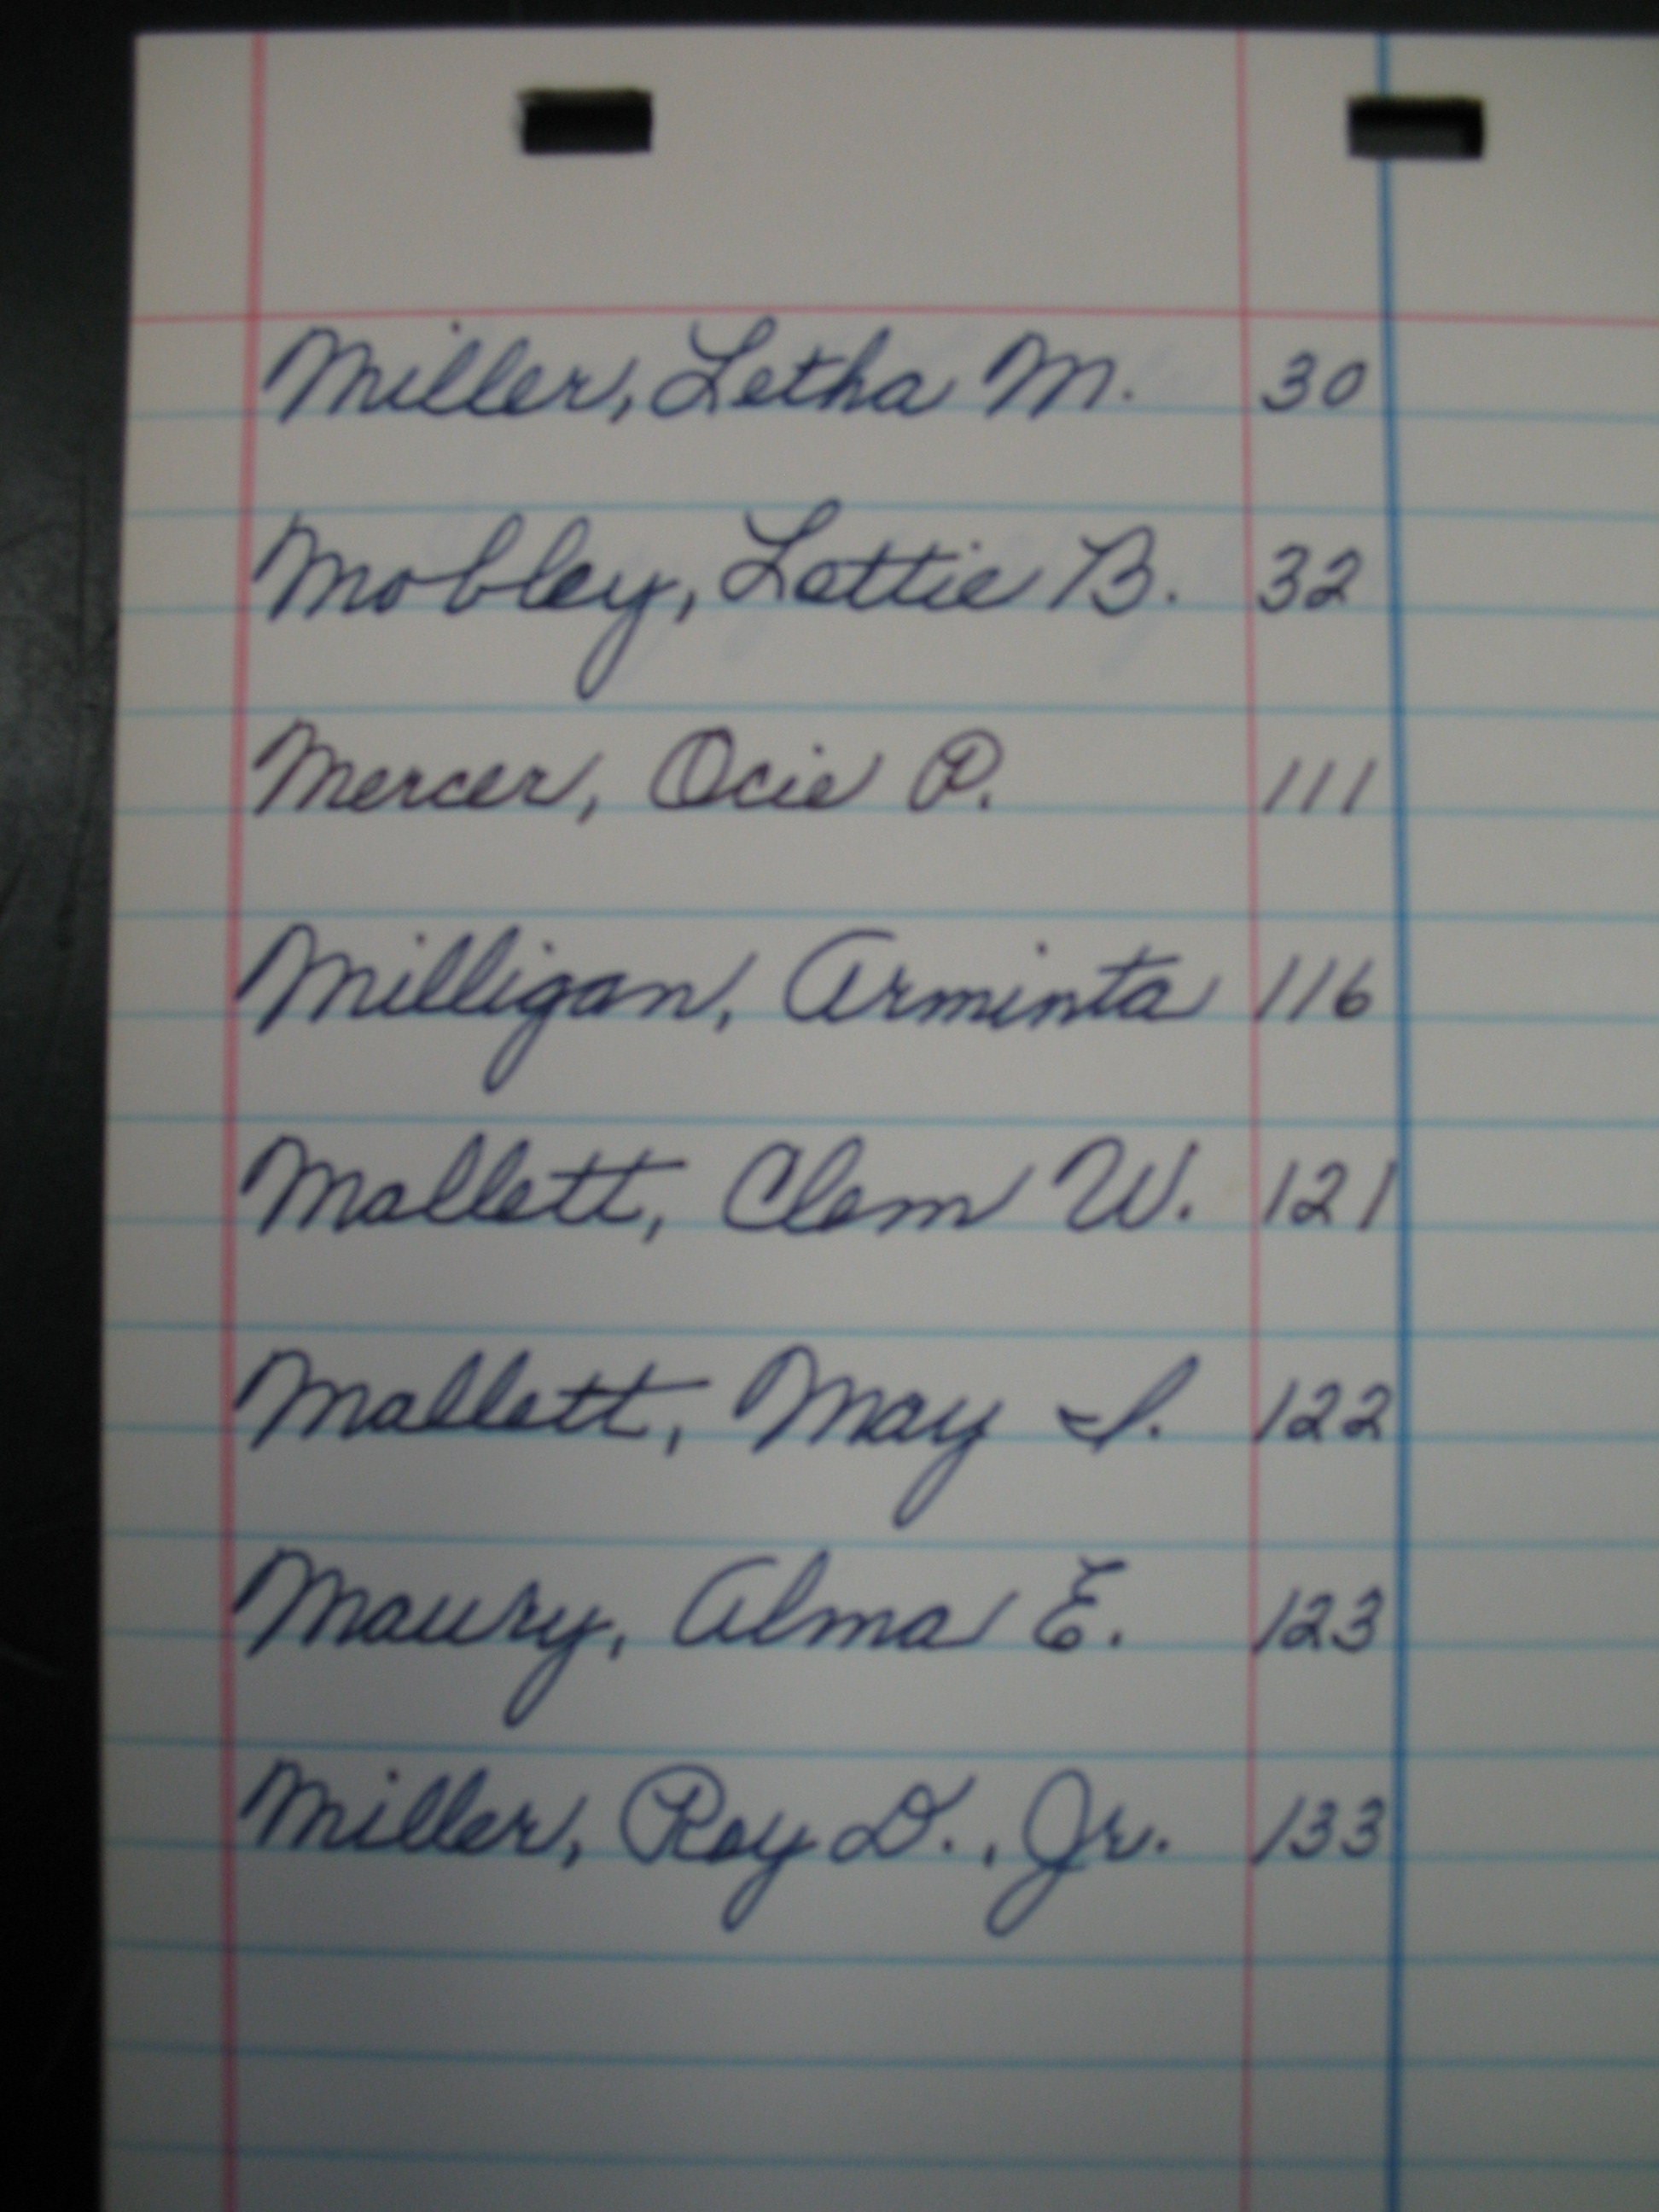 Miller, Letha M. 30
Mobley, Lottie B. 32
Mercer, Ocie P. 111
Milligan, Arminta 116
Mallett, Clem W. 121
Mallett, May I. 122
Maury, Alma E. 123
Miller, Roy D., Jr. 133